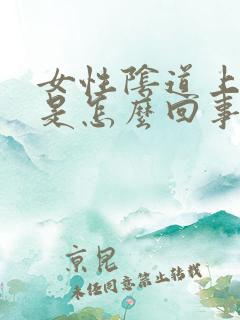 女性陰道上
是怎麼回事
京昆
未经同意禁止转载